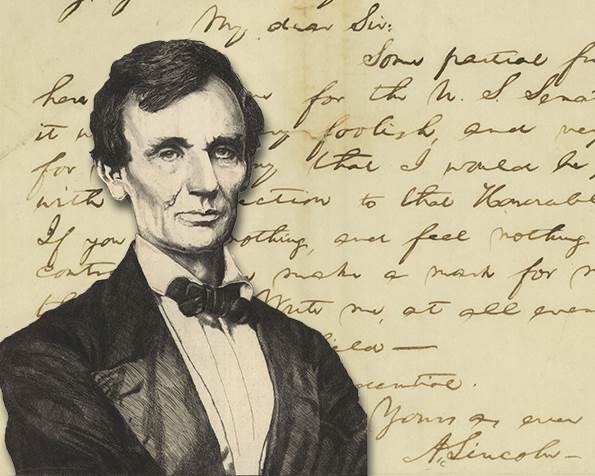 My dear Sir:
Some partial
here for the U. S.
it foolish, and
for that I would be
with to that Honorable
If you nothing, and feel nothing
make a mark for
Write me, at all
field —
Yours as ever
A. Lincoln —